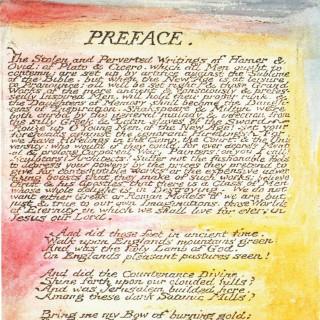 PREFACE.
The Stolen and Perverted Writings of Homer &
Ovid: of Plato & Cicero. which all Men ought to
contemn: are set up by artifice against the Sublime
of the Bible. but when the New Age is at leisure
to Pronounce; all will be set right: & those Grand
Works of the more ancient & consciously & profes-
sedly Inspired Men, will hold their proper rank, &
the Daughters of Memory shall become the Daugh-
ters of Inspiration. Shakspeare & Milton were
both curbd by the general malady & infection from
the silly Greek & Latin slaves of the Sword.
Rouze up O Young Men of the New Age! set your
foreheads against the ignorant Hirelings! For
we have Hirelings in the Camp, the Court, & the Uni-
versity: who would if they could, for ever depress Mental
& prolong Corporeal War. Painters! on you I call!
Sculptors! Architects! Suffer not the fashionable Fools
to depress your powers by the prices they pretend to
give for contemptible works or the expensive adver-
tizing boasts that they make of such works; believe
Christ & his Apostles that there is a Class of Men
whose whole delight is in Destroying. We do not
want either Greek or Roman Models if we are but
just & true to our own Imaginations, those Worlds
of Eternity in which we shall live for ever; in
Jesus our Lord.
And did those feet in ancient time,
Walk upon Englands mountains green:
And was the holy Lamb of God,
On Englands pleasant pastures seen!
And did the Countenance Divine,
Shine forth upon our clouded hills?
And was Jerusalem builded here,
Among these dark Satanic Mills?
Bring me my Bow of burning gold: